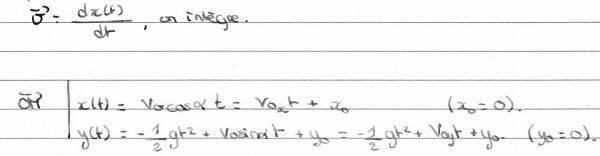 v⃗ = dx(t)/dt, on intègre.
OM⃗ | x(t) = V₀cosα t = V₀ₓt + x₀ (x₀ = 0).
y(t) = -1/2 gt² + V₀sinα t + y₀ = -1/2 gt² + V₀yt + y₀. (y₀ = 0).